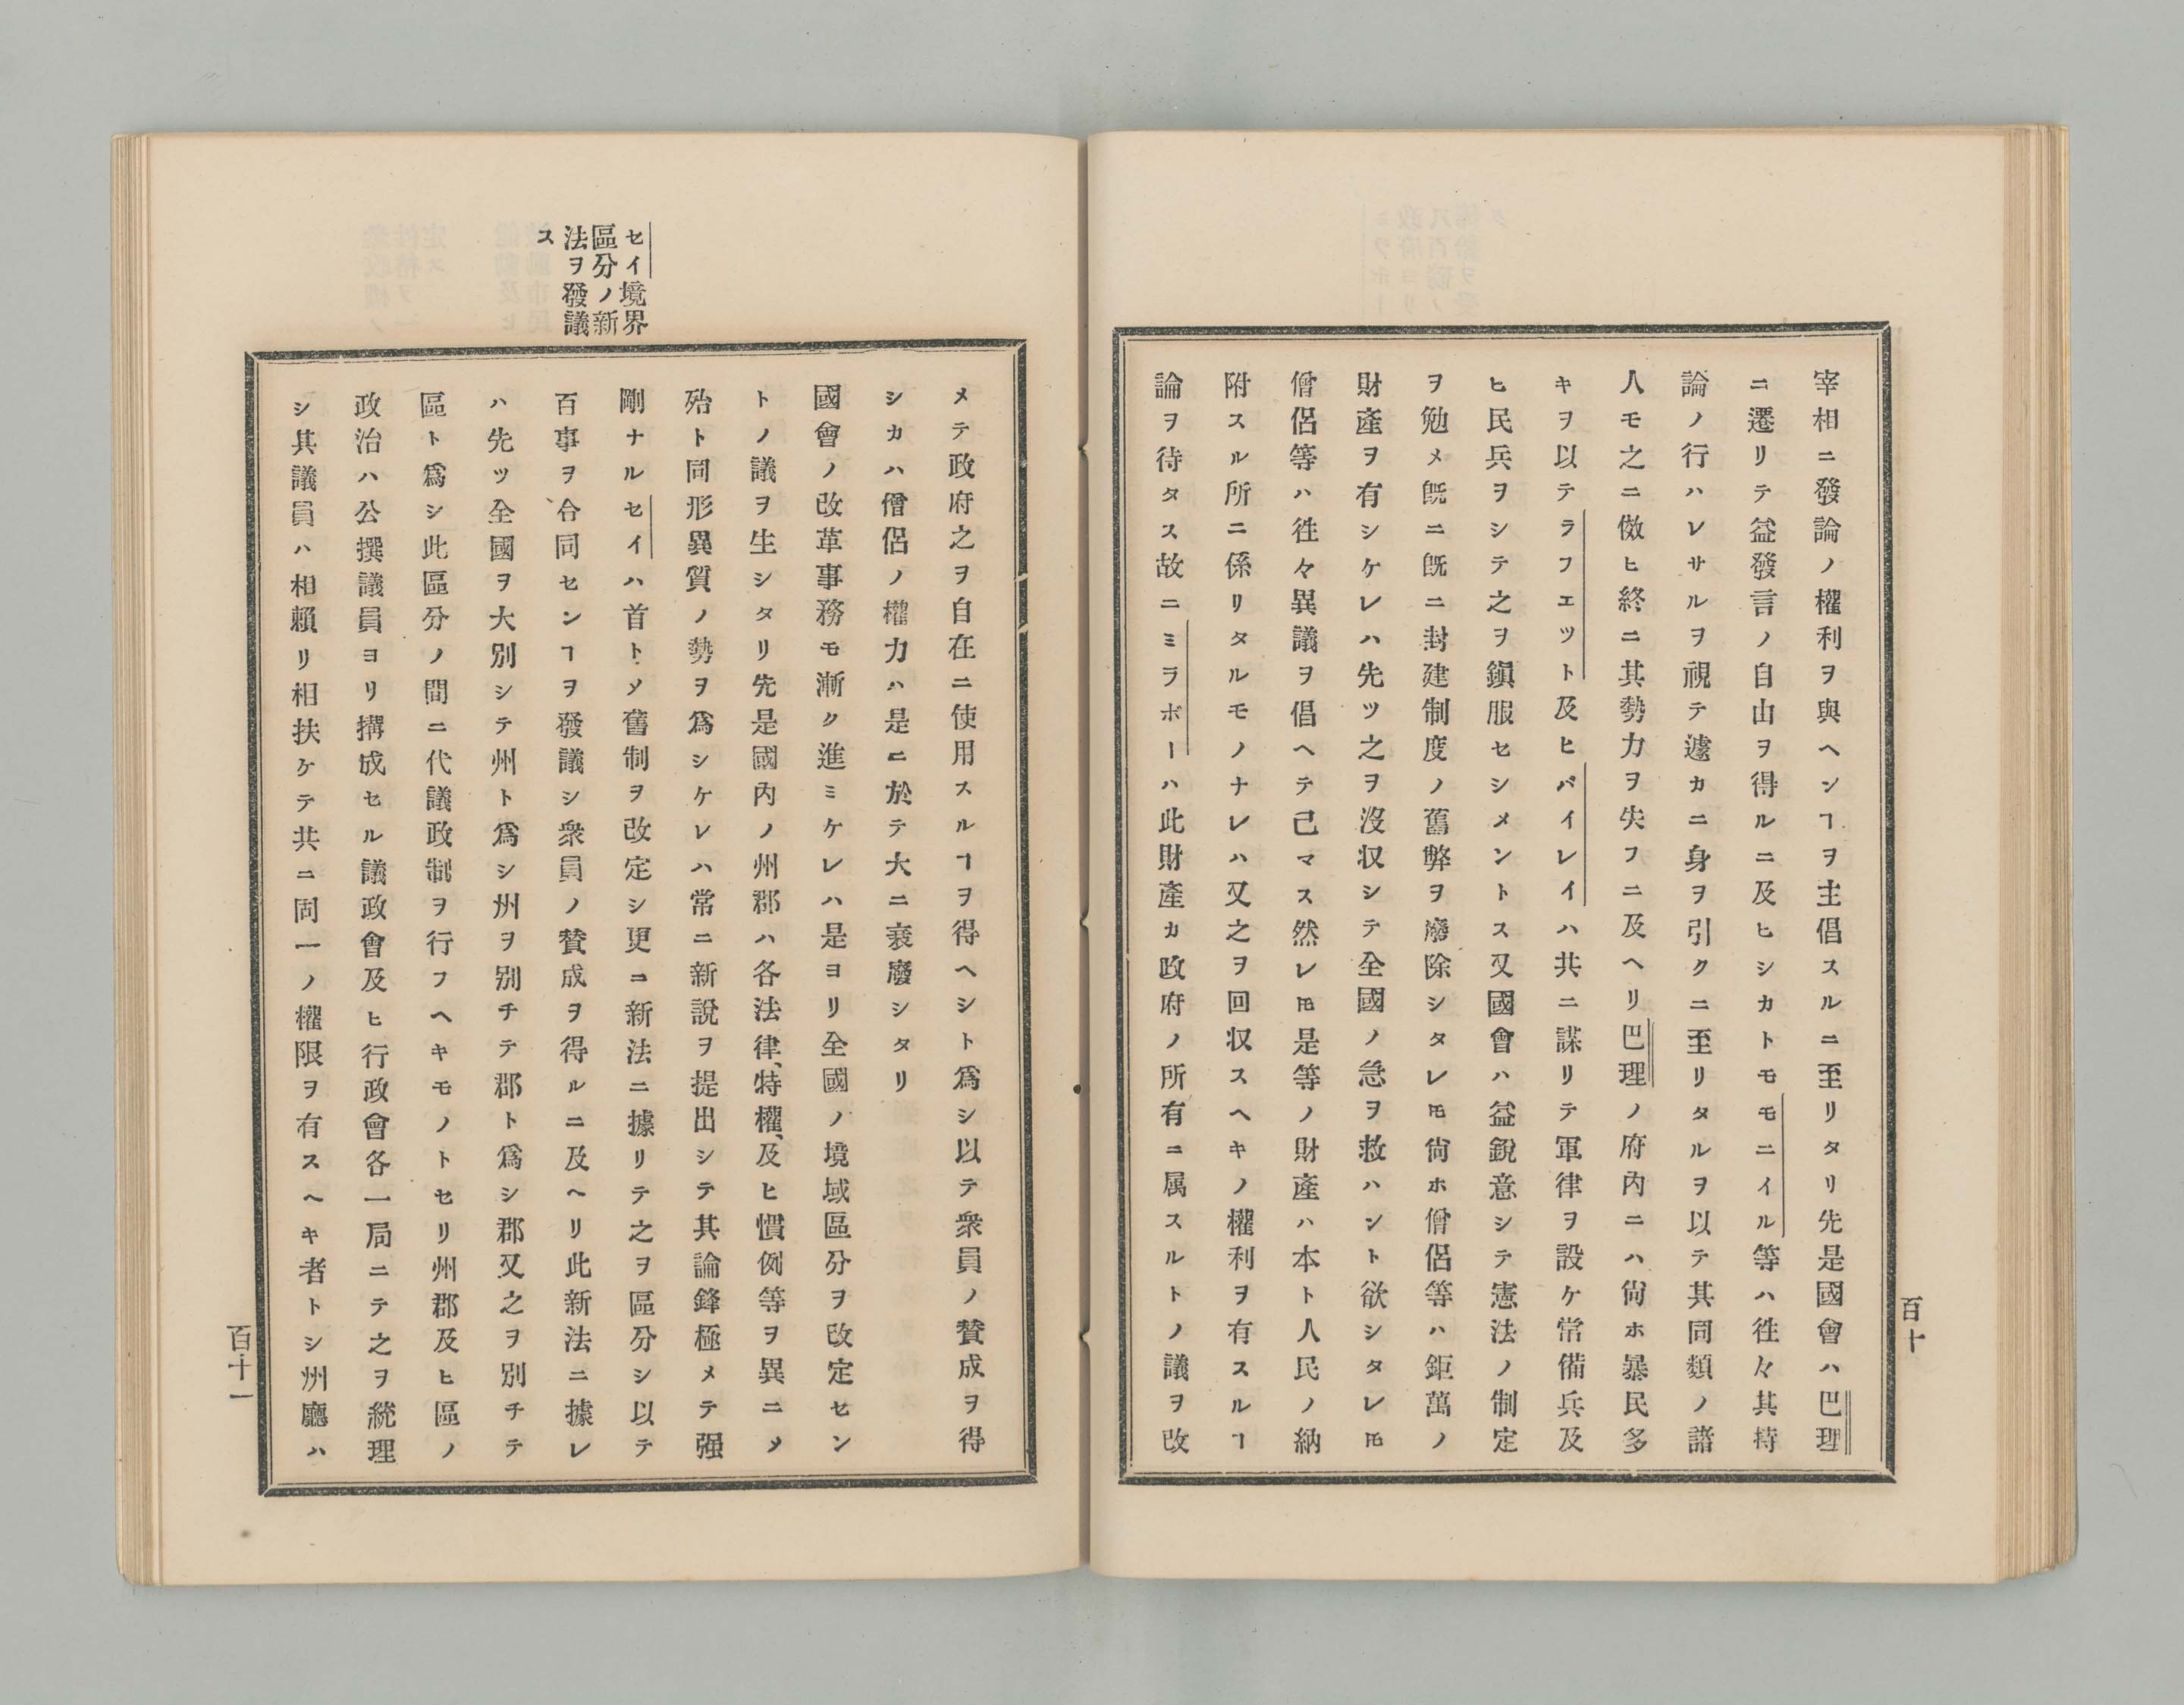 宰相ニ發論ノ權利ヲ與ヘンヿヲ主倡スルニ至リタリ先是國會ハ巴理
ニ遷リテ益發言ノ自山ヲ得ルニ及ヒシカトモモニイル等ハ徃々其持
論ノ行ハレサルヲ視テ遽カニ身ヲ引クニ至リタルヲ以テ其同類ノ諸
人モ之ニ傚ヒ終ニ其勢力ヲ失フニ及ヘリ巴理ノ府内ニハ尙ホ暴民多
キヲ以テラフエツト及ヒバイレイハ共ニ謀リテ軍律ヲ設ケ常備兵及
ヒ民兵ヲシテ之ヲ鎭服セシメントス又國會ハ益銳意シテ憲法ノ制定
ヲ勉メ既ニ既ニ封建制度ノ舊弊ヲ廢除シタレ𪜈尙ホ僧侶等ハ鉅萬ノ
財產ヲ有シケレハ先ツ之ヲ沒収シテ全國ノ急ヲ救ハント欲シタレ𪜈
僧侶等ハ徃々異議ヲ倡ヘテ己マス然レ𪜈是等ノ財產ハ本ト人民ノ納
附スル所ニ係リタルモノナレハ又之ヲ回収スヘキノ權利ヲ有スルヿ
論ヲ待タス故ニミラボーハ此財產カ政府ノ所有ニ属スルトノ議ヲ改
百十
セイ境界
區分ノ新
法ヲ發議
ス
メテ政府之ヲ自在ニ使用スルヿヲ得ヘシト爲シ以テ衆員ノ賛成ヲ得
シカハ僧侶ノ權力ハ是ニ於テ大ニ衰廢シタリ
國會ノ改革事務モ漸ク進ミケレハ是ヨリ全國ノ境域區分ヲ改定セン
トノ議ヲ生シタリ先是國内ノ州郡ハ各法律、特權、及ヒ慣例等ヲ異ニメ
殆ト同形異質ノ勢ヲ爲シケレハ常ニ新說ヲ提出シテ其論鋒極メテ强
剛ナルセイハ首トメ舊制ヲ改定シ更ニ新法ニ據リテ之ヲ區分シ以テ
百事ヲ合同センヿヲ發議シ衆員ノ賛成ヲ得ルニ及ヘリ此新法ニ據レ
ハ先ツ全國ヲ大別シテ州ト爲シ州ヲ別チテ郡ト爲シ郡又之ヲ別チテ
區ト爲シ此區分ノ間ニ代議政制ヲ行フヘキモノトセリ州郡及ヒ區ノ
政治ハ公撰議員ヨリ搆成セル議政會及ヒ行政會各一局ニテ之ヲ統理
シ其議員ハ相賴リ相扶ケテ共ニ同一ノ權限ヲ有スヘキ者トシ州廳ハ
百十一